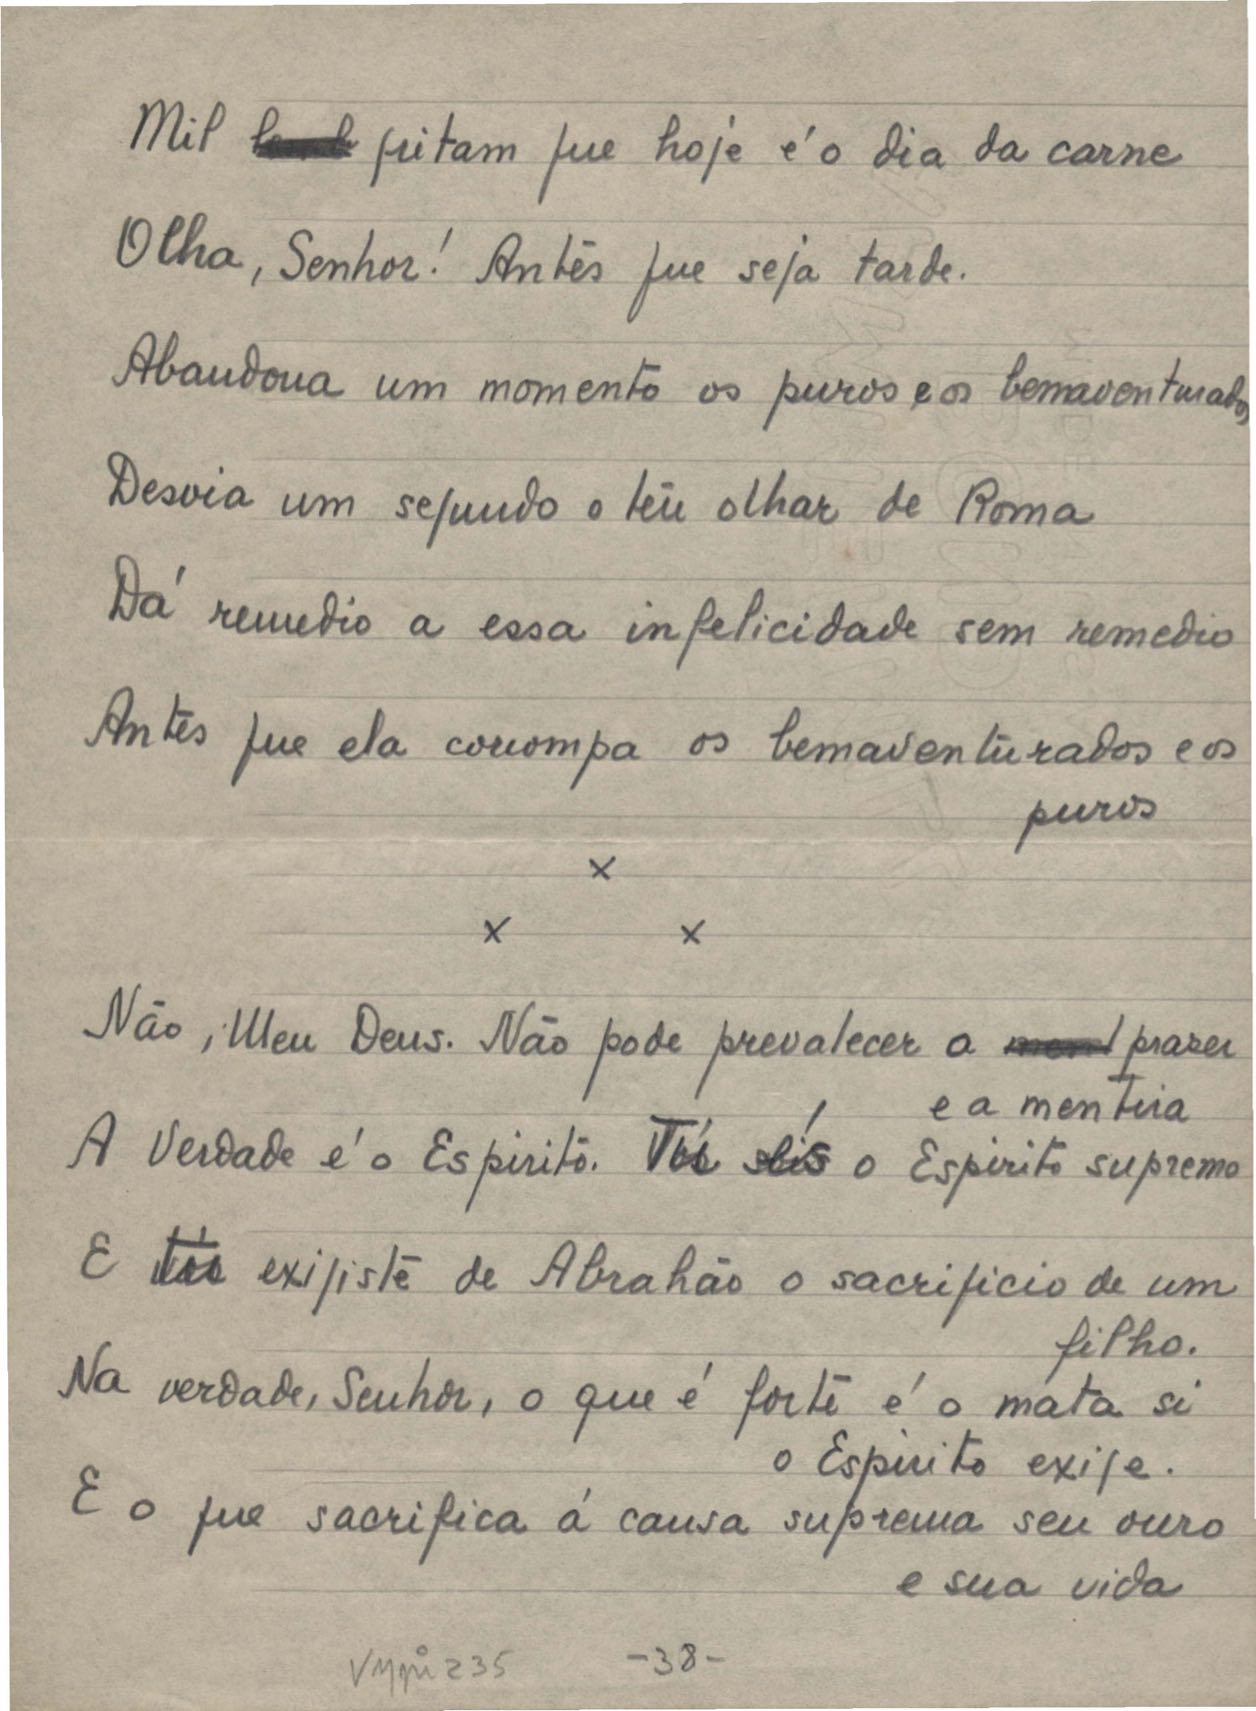 Mil gritam que hoje é o dia da carne
Olha, Senhor! Antes que seja tarde.
Abandona um momento os puros e os bemaventurados
Desvia um segundo o teu olhar de Roma
Dá remedio a essa infelicidade sem remedio
Antes que ela corrompa os bemaventurados e os
puros
x
x x
Não, Meu Deus. Não pode prevalecer o prazer
e a mentira
A Verdade é o Espirito. o Espirito supremo
E exigiste de Abrahão o sacrificio de um
filho.
Na verdade, Senhor, o que é forte é o mata si
o Espirito exige.
E o que sacrifica á causa suprema seu ouro
e sua vida
-38-